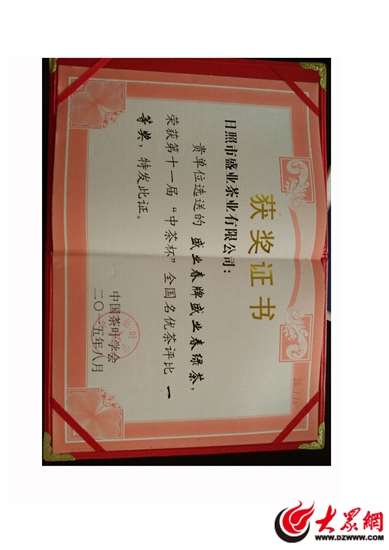 获奖证书
日照市盛业茶业有限公司：
贵单位选送的 盛业春牌盛业春绿茶，
荣获第十一届“中茶杯”全国名优茶评比 一
等奖，特发此证。
中国茶叶学会
二〇一五年八月
大众網
WWW.DZWWW.COM